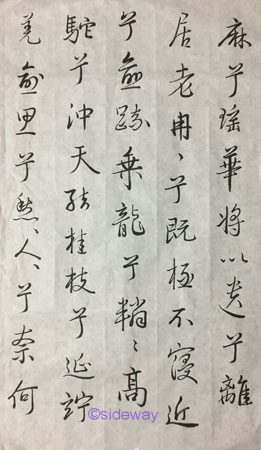 麻兮瑤華將以遺兮離
居老冉〻兮既極不寖近
兮愈疏乘龍兮轔〻高
駝兮沖天結桂枝兮延竚
羌愈思兮愁〻人〻兮奈何
©sideway